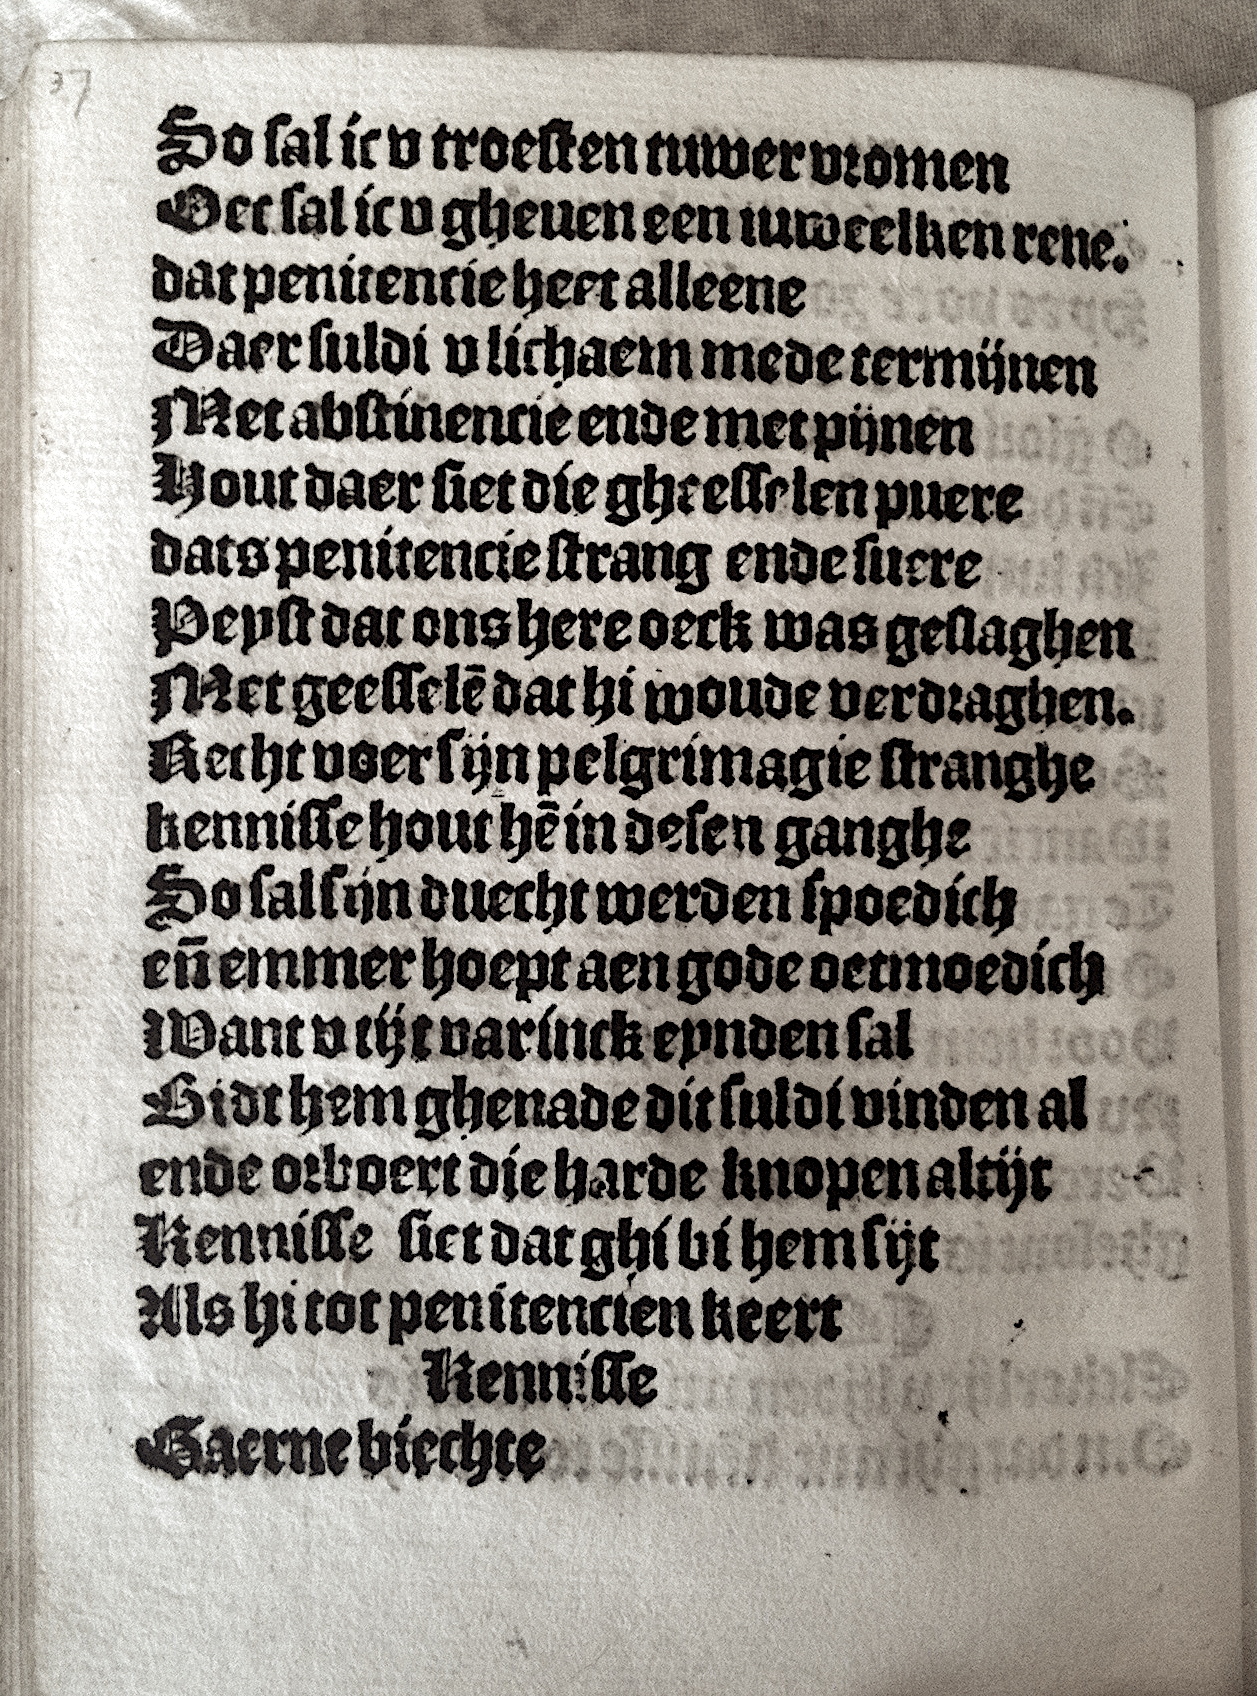 37
So sal ic v troesten tuwer vromen
Oec sal ic v gheuen een iuweelken rene.
dat penitencie heet alleene
Daer suldi v lichaem mede termijnen
Met abstinencie ende met pijnen
Hout daer siet die gheesselen puere
dats penitencie strang ende suere
Peyst dat ons here oeck was geslaghen
Met geesselē dat hi woude verdraghen.
Recht voer sijn pelgrimagie stranghe
kennisse hout hē in desen ganghe
So sal sijn duecht werden spoedich
eñ emmer hoept aen gode oetmoedich
Want v tijt varinck eynden sal
Bidt hem ghenade dit suldi vinden al
ende orboert die harde knopen altijt
Kennisse siet dat ghi bi hem sijt
Als hi tot penitencien keert
Kennisse
Gaerne biechte